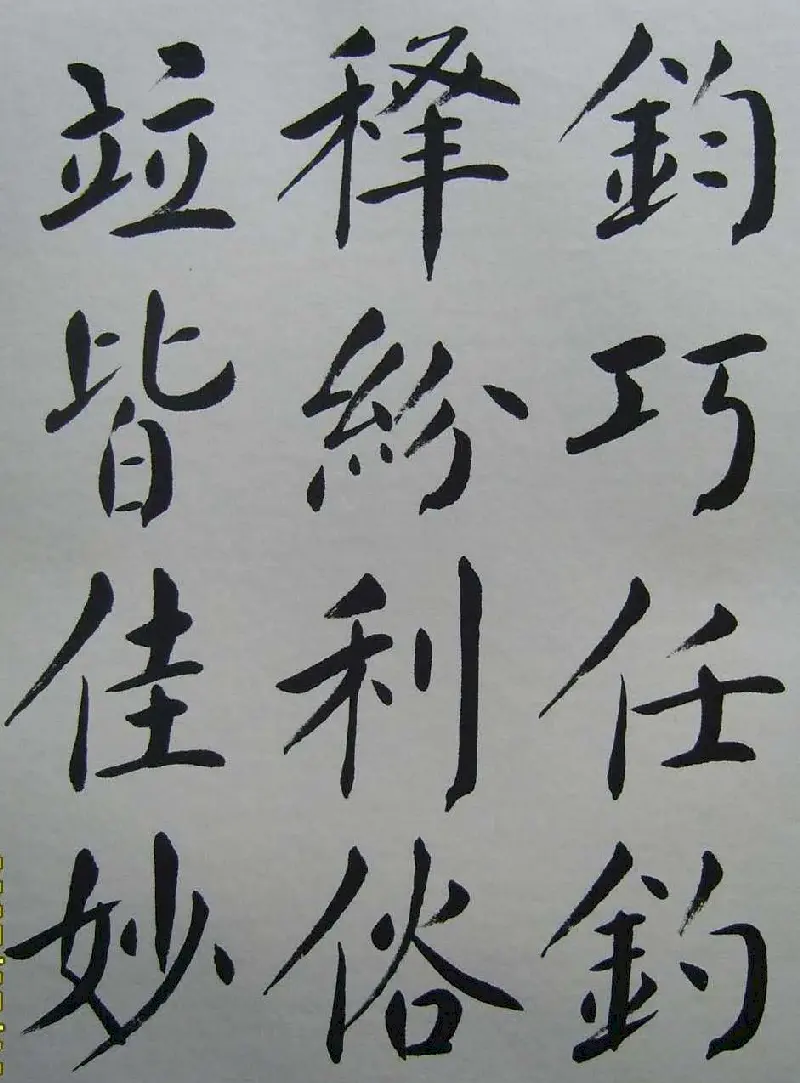 鈞巧任釣
釋紛利俗
竝皆佳妙